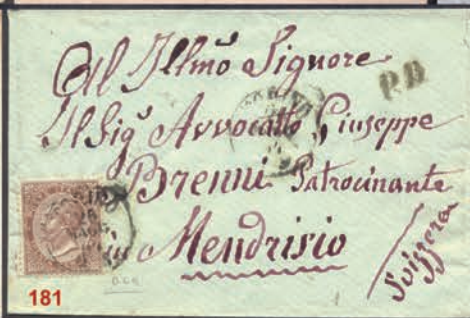 Al Illmo Signore
P.D.
Il Sig Avvocatto Giuseppe
Brenni Patrocinante
in Mendrisio
Svizzera
181